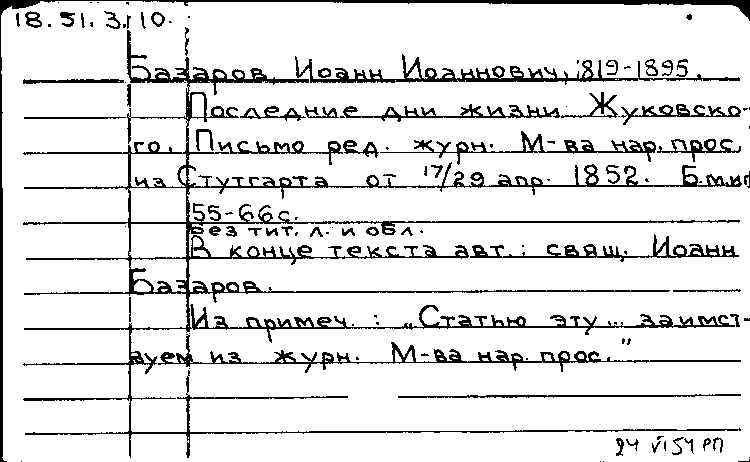 18.51.3.10.
Базаров, Иоанн Иоаннович, 1819-1895.
Последние дни жизни Жуковско-
го. Письмо ред. журн. М-ва нар. прос.
из Стутгарта от 17/29 апр. 1852. Б.м.иг
55-66с.
Без тит. л. и обл.
В конце текста авт.: свящ. Иоанн
Базаров.
Из примеч.: „Статью эту... заимст-
вуем из журн. М-ва нар. прос."
24 VI 54 РП